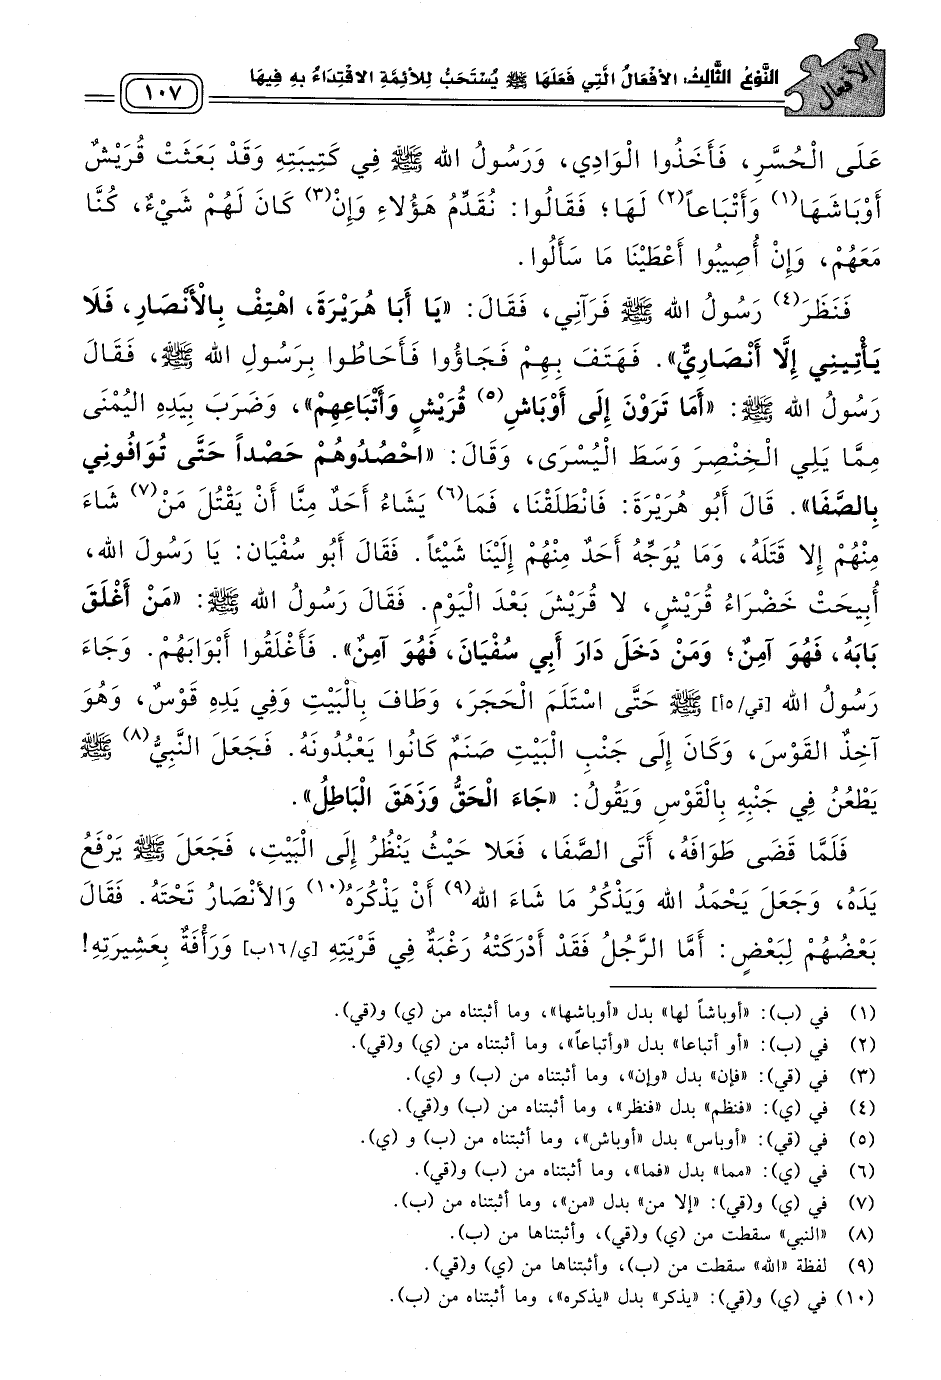 الأفعال
النَّوْعُ الثَّالِثُ: الأَفْعَالُ الَّتِي فَعَلَهَا ﷺ يُسْتَحَبُّ لِلأَئِمَّةِ الاقْتِدَاءُ بِهِ فِيهَا
١٠٧
عَلَى الْحُسَّرِ، فَأَخَذُوا الْوَادِي، وَرَسُولُ الله ﷺ فِي كَتِيبَتِهِ وَقَدْ بَعَثَتْ قُرَيْشٌ
أَوْبَاشَهَا(١) وَأَتْبَاعاً(٢) لَهَا؛ فَقَالُوا: نُقَدِّمُ هَؤُلاءِ وَإِنْ(٣) كَانَ لَهُمْ شَيْءٌ، كُنَّا
مَعَهُمْ، وَإِنْ أُصِيبُوا أَعْطَيْنَا مَا سَأَلُوا.
فَنَظَرَ(٤) رَسُولُ الله ﷺ فَرَآنِي، فَقَالَ: «يَا أَبَا هُرَيْرَةَ، اهْتِفْ بِالْأَنْصَارِ، فَلَا
يَأْتِينِي إِلَّا أَنْصَارِيٌّ». فَهَتَفَ بِهِمْ فَجَاؤُوا فَأَحَاطُوا بِرَسُولِ الله ﷺ، فَقَالَ
رَسُولُ الله ﷺ: «أَمَا تَرَوْنَ إِلَى أَوْبَاشِ(٥) قُرَيْشٍ وَأَتْبَاعِهِمْ»، وَضَرَبَ بِيَدِهِ الْيُمْنَى
مِمَّا يَلِي الْخِنْصِرَ وَسَطَ الْيُسْرَى، وَقَالَ: «احْصُدُوهُمْ حَصْداً حَتَّى تُوَافُونِي
بِالصَّفَا». قَالَ أَبُو هُرَيْرَةَ: فَانْطَلَقْنَا، فَمَا(٦) يَشَاءُ أَحَدٌ مِنَّا أَنْ يَقْتُلَ مَنْ(٧) شَاءَ
مِنْهُمْ إِلا قَتَلَهُ، وَمَا يُوَجِّهُ أَحَدٌ مِنْهُمْ إِلَيْنَا شَيْئاً. فَقَالَ أَبُو سُفْيَان: يَا رَسُولَ الله،
أُبِيحَتْ خَضْرَاءُ قُرَيْشٍ، لا قُرَيْشَ بَعْدَ الْيَوْمِ. فَقَالَ رَسُولُ الله ﷺ: «مَنْ أَغْلَقَ
بَابَهُ، فَهُوَ آمِنٌ؛ وَمَنْ دَخَلَ دَارَ أَبِي سُفْيَانَ، فَهُوَ آمِنٌ». فَأَغْلَقُوا أَبْوَابَهُمْ. وَجَاءَ
رَسُولُ الله [قي/٥أ] ﷺ حَتَّى اسْتَلَمَ الْحَجَرَ، وَطَافَ بِالْبَيْتِ وَفِي يَدِهِ قَوْسٌ، وَهُوَ
آخِذٌ الْقَوْسَ، وَكَانَ إِلَى جَنْبِ الْبَيْتِ صَنَمٌ كَانُوا يَعْبُدُونَهُ. فَجَعَلَ النَّبِيُّ(٨) ﷺ
يَطْعُنُ فِي جَنْبِهِ بِالْقَوْسِ وَيَقُولُ: «جَاءَ الْحَقُّ وَزَهَقَ الْبَاطِلُ».
فَلَمَّا قَضَى طَوَافَهُ، أَتَى الصَّفَا، فَعَلا حَيْثُ يَنْظُرُ إِلَى الْبَيْتِ، فَجَعَلَ ﷺ يَرْفَعُ
يَدَهُ، وَجَعَلَ يَحْمَدُ الله وَيَذْكُرُ مَا شَاءَ الله(٩) أَنْ يَذْكُرَهُ(١٠) وَالأَنْصَارُ تَحْتَهُ. فَقَالَ
بَعْضُهُمْ لِبَعْضٍ: أَمَّا الرَّجُلُ فَقَدْ أَدْرَكَتْهُ رَغْبَةٌ فِي قَرْيَتِهِ [ي/١٦ب] وَرَأْفَةٌ بِعَشِيرَتِهِ!
(١) في (ب): «أوباشاً لها» بدل «أوباشها»، وما أثبتناه من (ي) و(قي).
(٢) في (ب): «أو أتباعا» بدل «وأتباعاً»، وما أثبتناه من (ي) و(قي).
(٣) في (قي): «فإن» بدل «وإن»، وما أثبتناه من (ب) و (ي).
(٤) في (ي): «فنظم» بدل «فنظر»، وما أثبتناه من (ب) و(قي).
(٥) في (قي): «أوباس» بدل «أوباش»، وما أثبتناه من (ب) و (ي).
(٦) في (ي): «مما» بدل «فما»، وما أثبتناه من (ب) و(قي).
(٧) في (ي) و(قي): «إلا من» بدل «من»، وما أثبتناه من (ب).
(٨) «النبي» سقطت من (ي) و(قي)، وأثبتناها من (ب).
(٩) لفظة «الله» سقطت من (ب)، وأثبتناها من (ي) و(قي).
(١٠) في (ي) و(قي): «يذكر» بدل «يذكره»، وما أثبتناه من (ب).